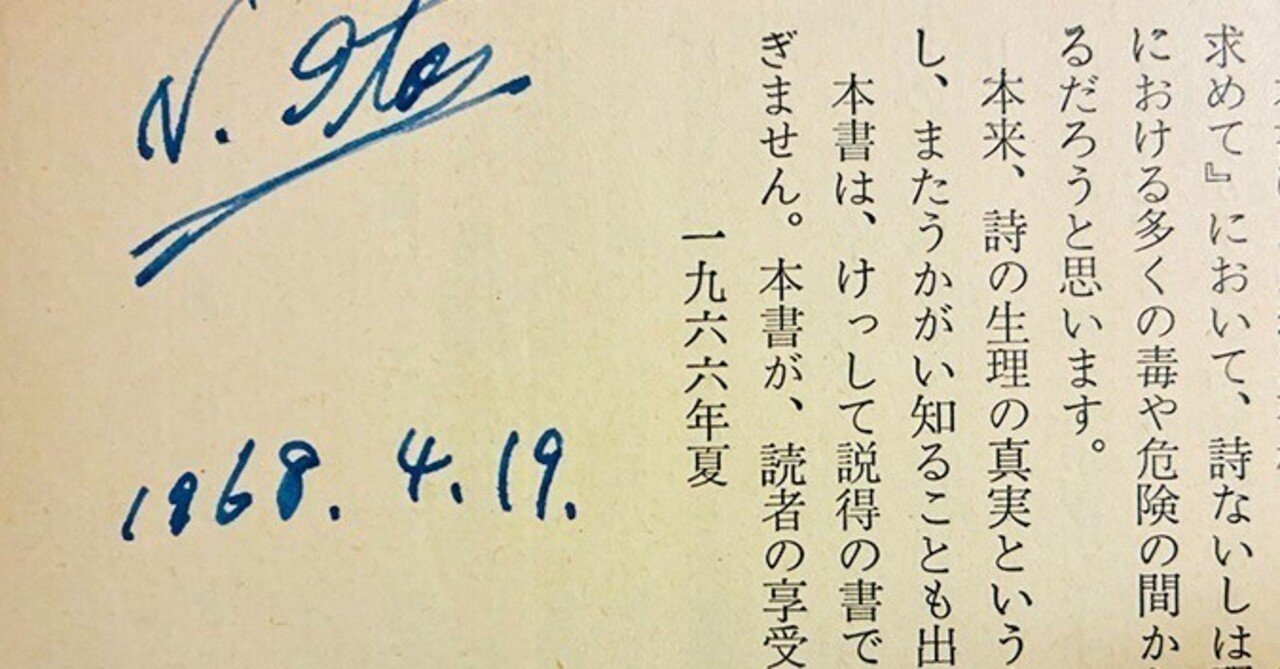 求めて』において、詩ないしは
における多くの毒や危険の間か
るだろうと思います。
本来、詩の生理の真実という
し、またうかがい知ることも出
本書は、けっして説得の書で
ぎません。本書が、読者の享受
一九六六年夏
N. Ito
1968. 4. 19.